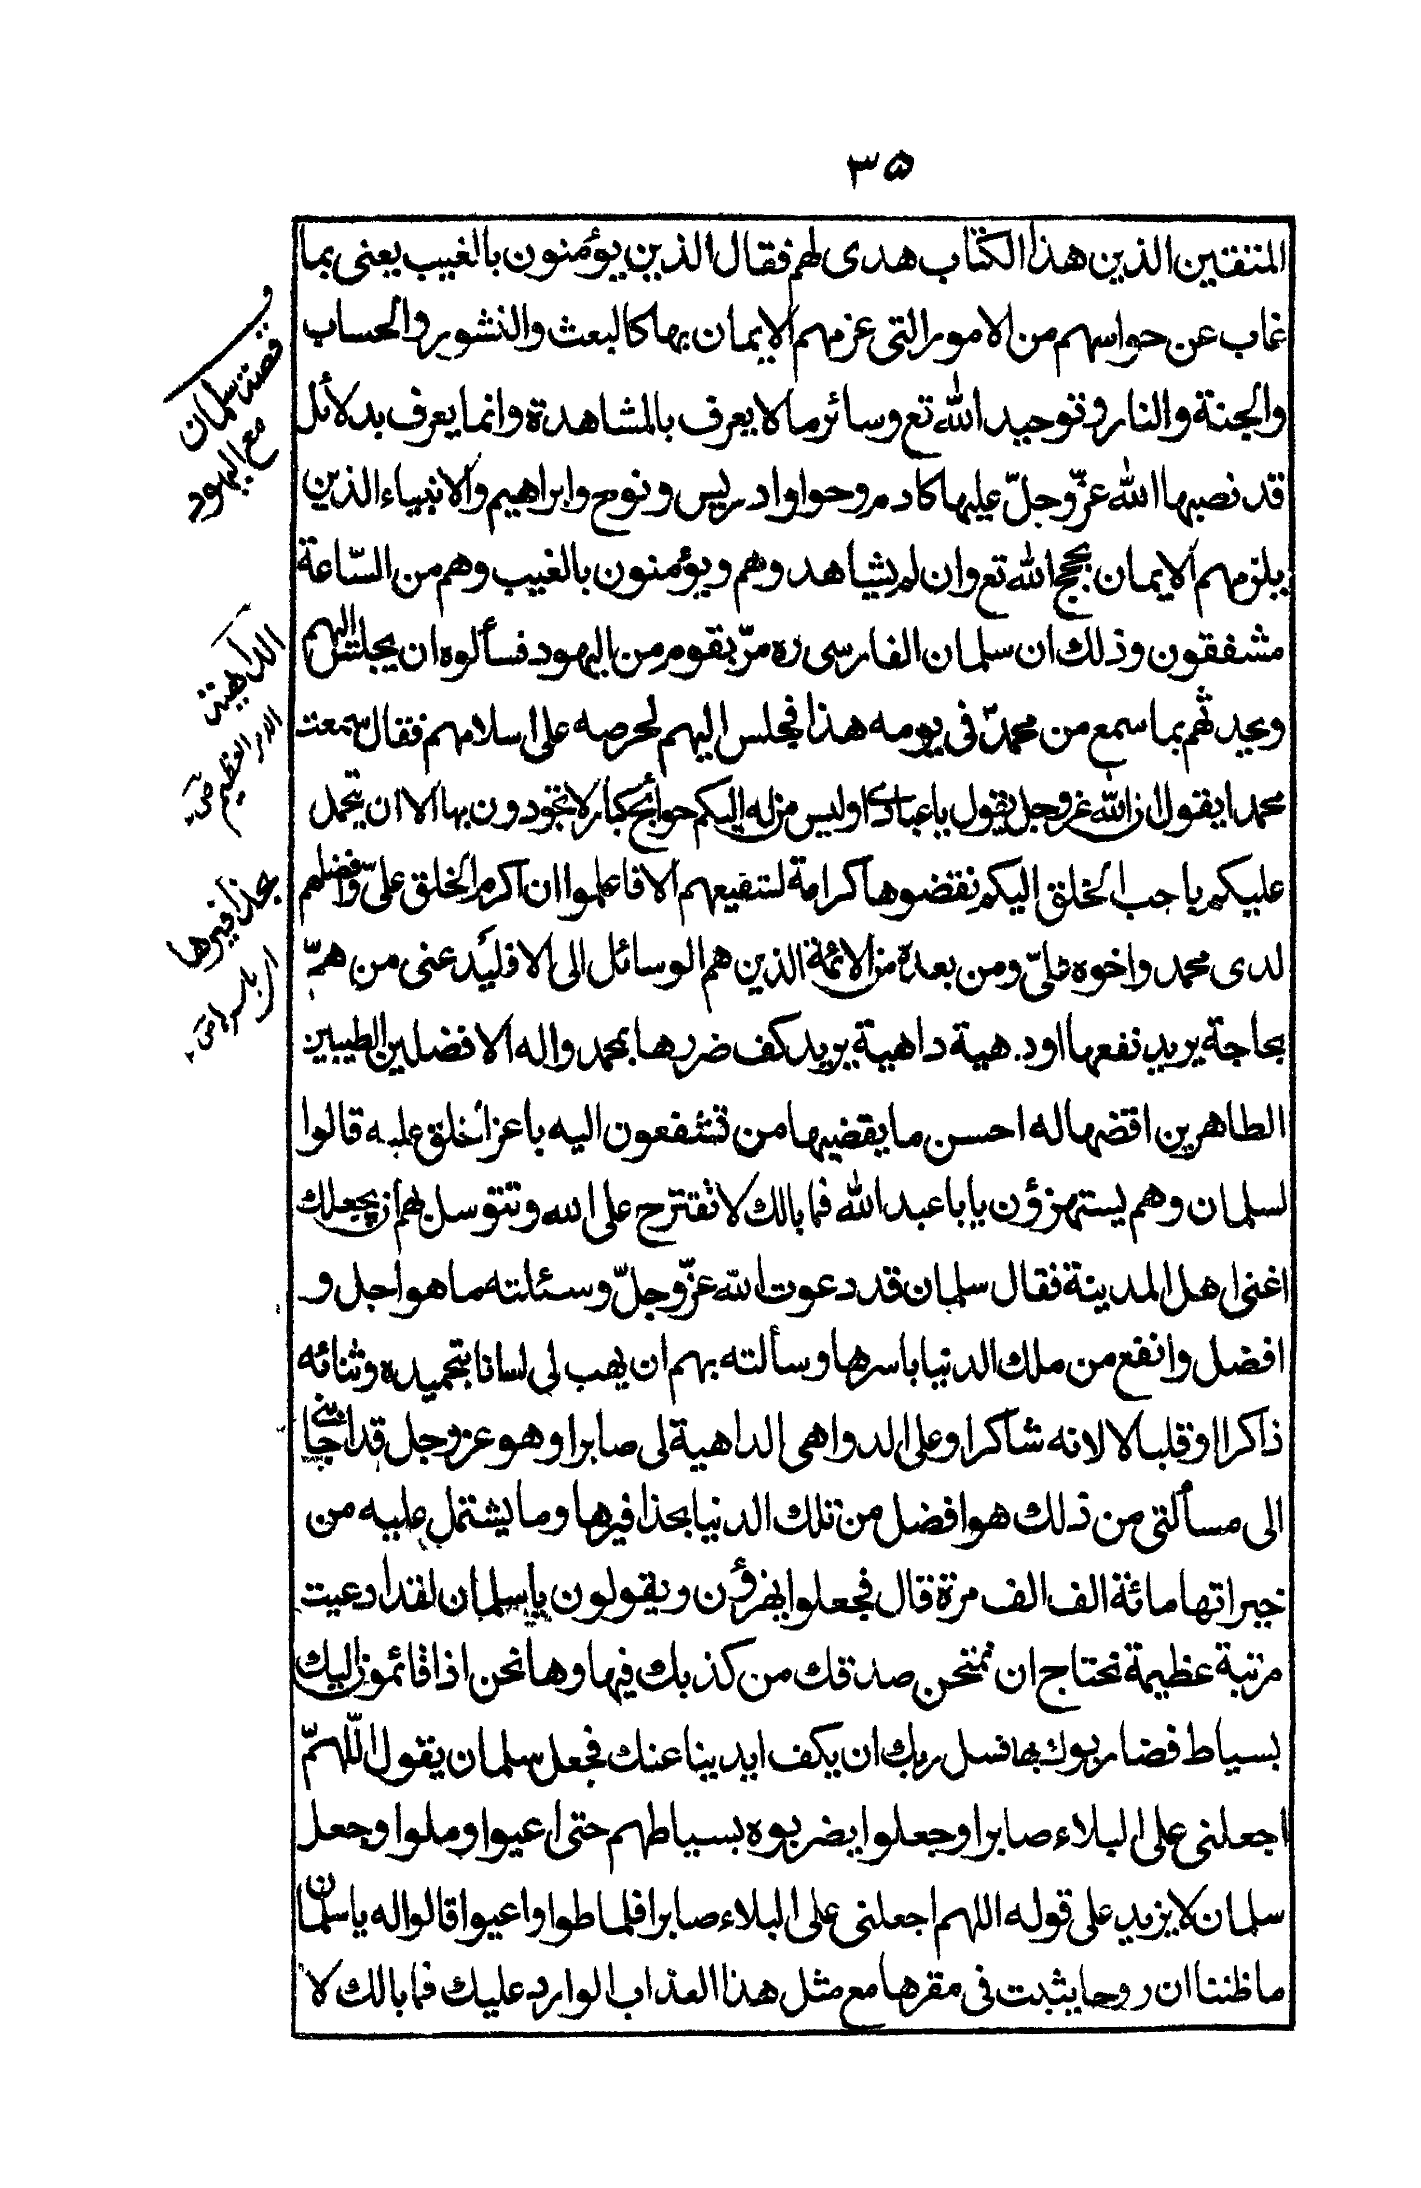 ٣٥
المتقين الذين هذا الكتاب هدى لهم فقال الذين يؤمنون بالغيب يعنى بما
غاب عن حواسهم من الامور التى عزمهم الايمان بها كالبعث والنشور والحساب
والجنة والنار وتوحيد الله تع وسائر ما لا يعرف بالمشاهدة وانما يعرف بدلائل
قد نصبها الله عزّ وجلّ عليها كادم وحوا وادريس ونوح وابراهيم والانبياء الذين
يلزمهم الايمان بحجج الله تع وان لم يشاهدوهم ويؤمنون بالغيب وهم من السّاعة
مشفقون وذلك ان سلمان الفارسى ره مرّ بقوم من اليهود فسألوه ان يجلس اليهم
ويحدثهم بما سمع من محمدّ فى يومه هذا فجلس اليهم لحرصه على اسلامهم فقال سمعت
محمدا يقول ان الله عز وجل يقول يا عبادى اوليس من له اليكم حوائج كبار لا تجودون بها الا ان يتحمل
عليكم باحب الخلق اليكم تقضوها كرامة لشفيعهم الا فاعلموا ان اكرم الخلق علىّ وافضلهم
لدى محمد واخوه علىّ ومن بعده من الائمة الذين هم الوسائل الى الا فليدعنى من همّ
بحاجة يريد نفعها اودهية داهية يريد كف ضررها بمحمد واله الافضلين الطيبين
الطاهرين اقضها له احسن ما يقضيها من تشفعون اليه باعز الخلق عليه قالوا
لسلمان وهم يستهزؤن يا با عبد الله فما بالك لا تقترح على الله وتتوسل لهم ان يجعلك
اغنى اهل المدينة فقال سلمان قد دعوت الله عزّ وجلّ وسئلته ما هو اجل و
افضل وانفع من ملك الدنيا باسرها وسألته بهم ان يهب لى لسانا بتحميده وثنائه
ذاكرا وقلبا لالائه شاكرا وعلى الدواهى الداهية لى صابرا وهو عز وجل قد اجابنى
الى مسألتى من ذلك هو افضل من تلك الدنيا بحذافيرها وما يشتمل عليه من
خيراتها مائة الف الف مرة قال فجعلوا يهزؤن ويقولون يا سلمان لقد ادعيت
مرتبة عظيمة نحتاج ان نمتحن صدقك من كذبك فيها وها نحن اذا قائمون اليك
بسياط فضاربوك بها فسل ربك ان يكف ايدينا عنك فجعل سلمان يقول اللّهمّ
اجعلنى على البلاء صابرا وجعلوا يضربوه بسياطهم حتى اعيوا وملوا وجعل
سلمان لا يزيد على قوله اللهم اجعلنى على البلاء صابرا فلما طوا واعيوا قالوا له يا سلمان
ما ظننا ان روحا يثبت فى مقرها مع مثل هذا العذاب الوارد عليك فما بالك لا
و
قصة سلمان
مع اليهود
الداهية
الامر العظيم ص
بحذافيرها